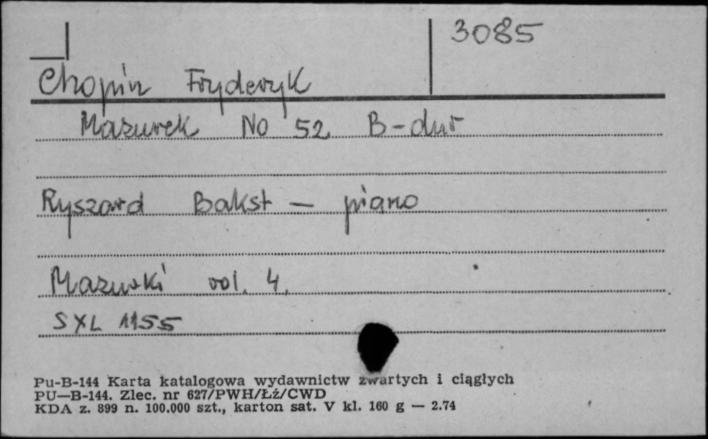 3085
Chopin Fryderyk
Mazurek No 52 B-dur
Ryszard Bakst — piano
Mazurki vol. 4.
SXL 1155
Pu-B-144 Karta katalogowa wydawnictw zwartych i ciągłych
PU—B-144. Zlec. nr 627/PWH/Łź/CWD
KDA z. 899 n. 100.000 szt., karton sat. V kl. 160 g — 2.74